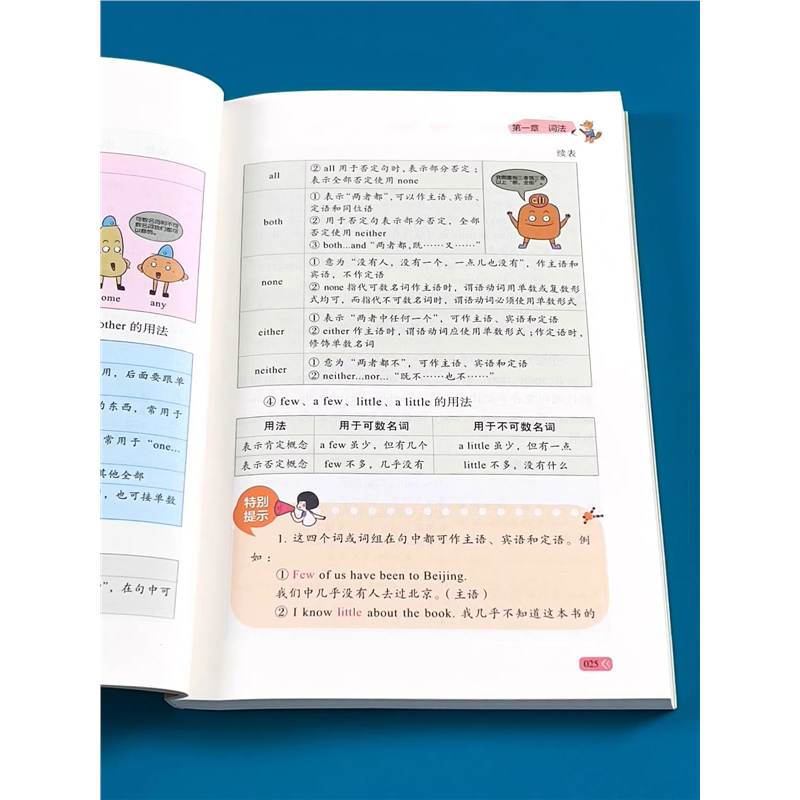 可数名词和不可
数名词我们都可
以修饰。
ome
any
other 的用法
用，后面要跟单
的东西，常用于
常用于 “one...
其他全部
，也可接单数
”，在句中可
第一章 词法
续表
all
② all 用于否定句时，表示部分否定；
表示全部否定使用 none
以上“都，全部”。
all
both
① 表示“两者都”，可以作主语、宾语、
定语和同位语
② 用于否定句表示部分否定，全部
否定使用 neither
③ both...and “两者都，既……又……”
none
① 意为 “没有人，没有一个，一点儿也没有”，作主语和
宾语，不作定语
② none 指代可数名词作主语时，谓语动词用单数或复数形
式均可，而指代不可数名词时，谓语动词必须使用单数形式
either
① 表示 “两者中任何一个”，可作主语、宾语和定语
② either 作主语时，谓语动词应使用单数形式；作定语时，
修饰单数名词
neither
① 意为 “两者都不”，可作主语、宾语和定语
② neither...nor... “既不……也不……”
④ few、a few、little、a little 的用法
用法 用于可数名词 用于不可数名词
表示肯定概念 a few 虽少，但有几个 a little 虽少，但有一点
表示否定概念 few 不多，几乎没有 little 不多，没有什么
特别
提示
1. 这四个词或词组在句中都可作主语、宾语和定语。例
如：
① Few of us have been to Beijing.
我们中几乎没有人去过北京。（主语）
② I know little about the book. 我几乎不知道这本书的
025